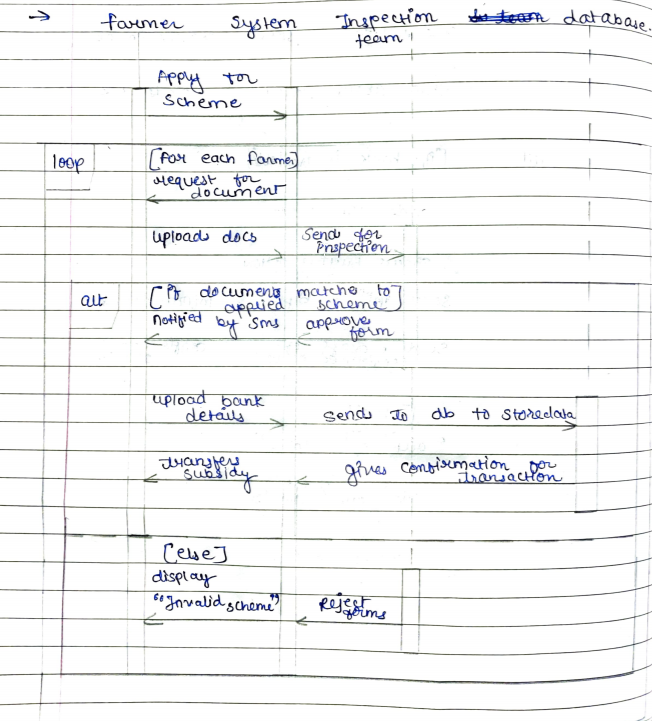 → farmer System Inspection database.
team
Apply for
Scheme
loop [For each farmer]
request for
document
upload docs Send for
inspection
alt [if documents matches to
applied scheme]
Notified by sms approve
form
upload bank
details Send to db to store data
transfers
subsidy gives confirmation for
transaction
[else]
display
"Invalid scheme" Reject
forms